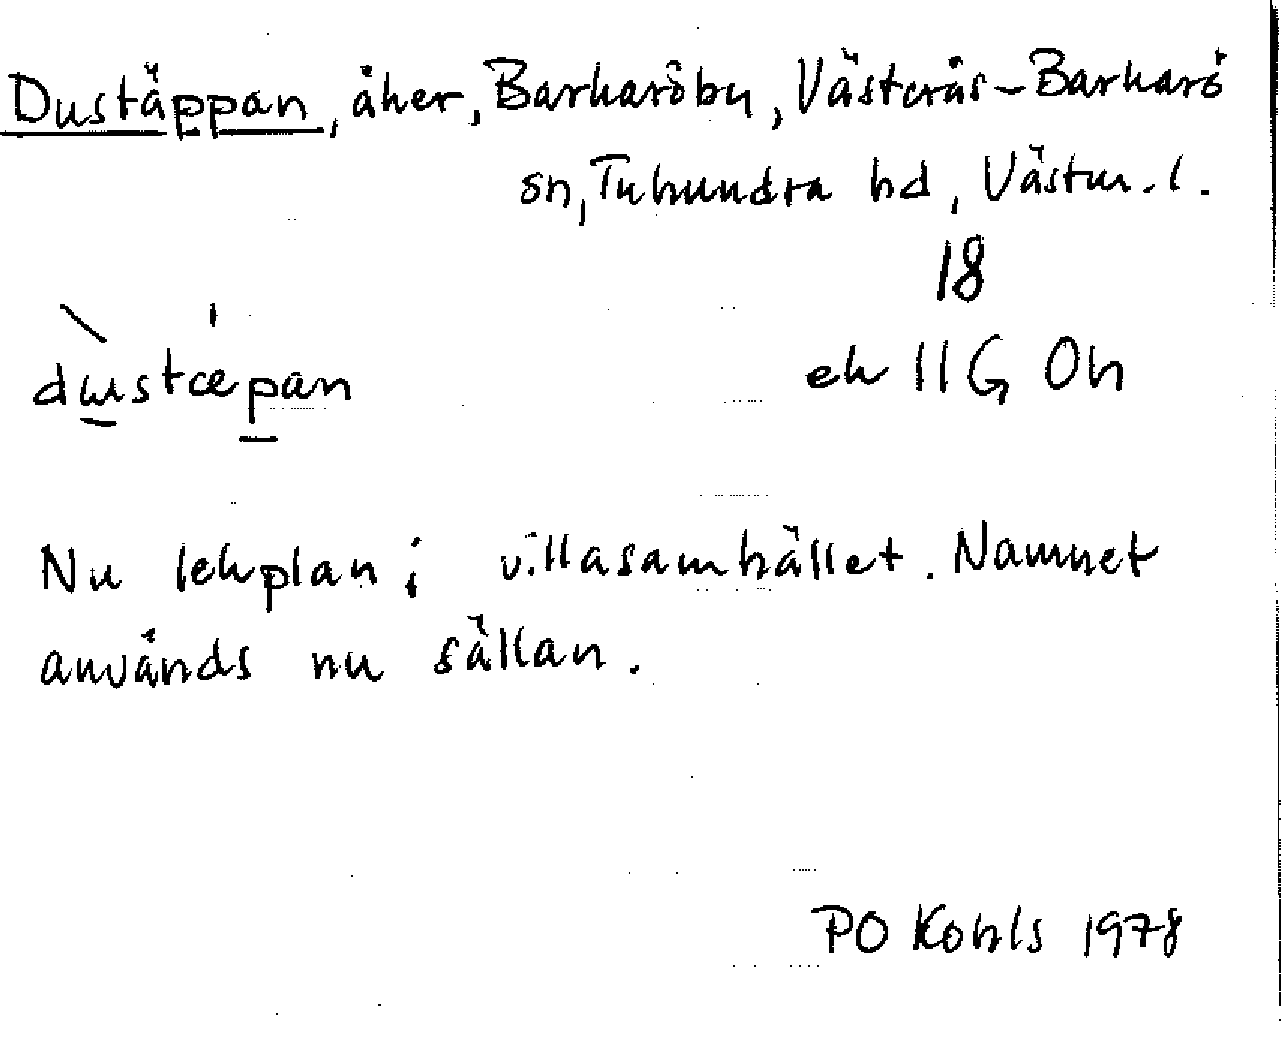 Dustäppan, åker, Barkaröby, Västerås-Barkarö
sn, Tuhundra hd, Västm. l.
18
dustæpan
ek 11G Oh
Nu lekplan i villasamhället. Namnet
används nu sällan.
PO Kohls 1978